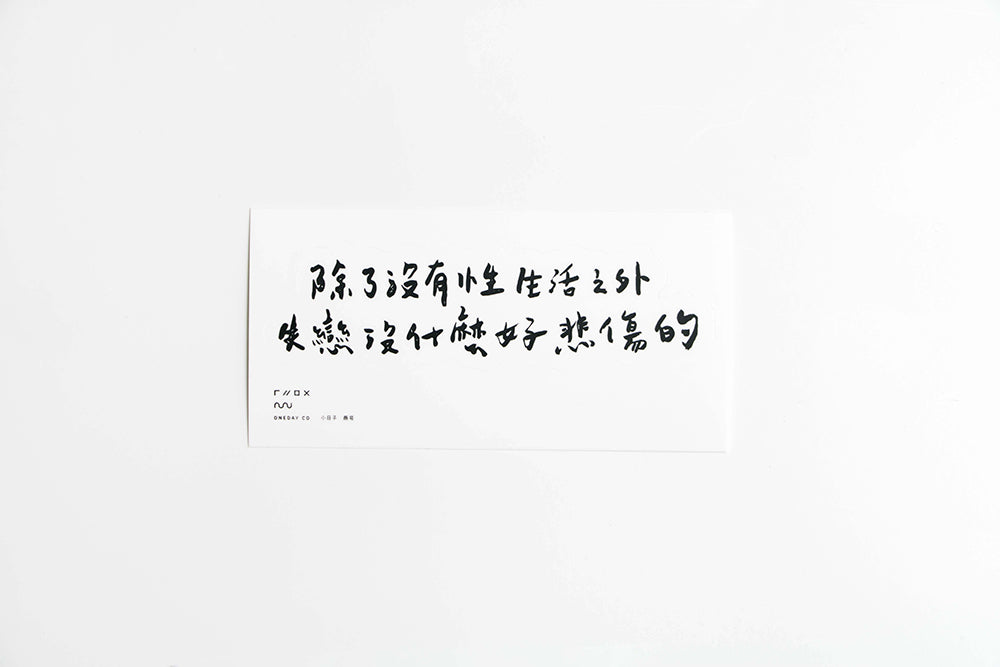 除了沒有性生活之外
失戀沒什麼好悲傷的
ONEDAY CO 小日子